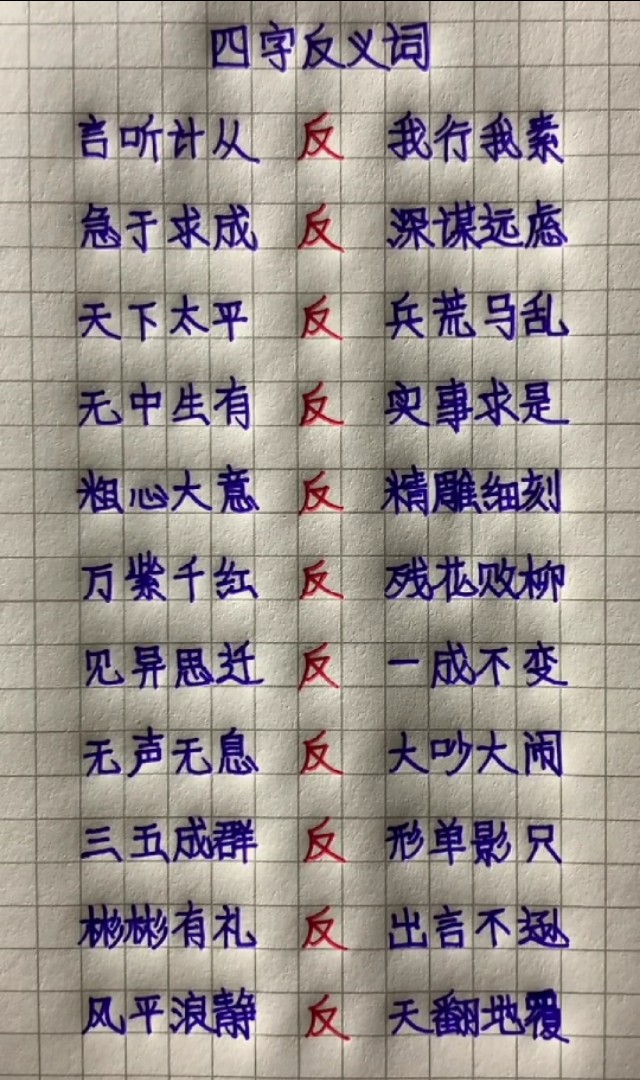 四字反义词
言听计从 反 我行我素
急于求成 反 深谋远虑
天下太平 反 兵荒马乱
无中生有 反 实事求是
粗心大意 反 精雕细刻
万紫千红 反 残花败柳
见异思迁 反 一成不变
无声无息 反 大吵大闹
三五成群 反 形单影只
彬彬有礼 反 出言不逊
风平浪静 反 天翻地覆